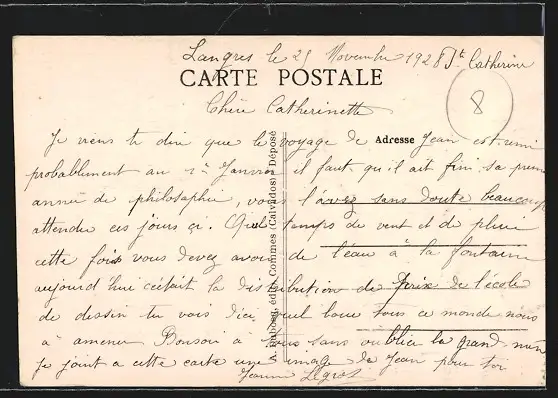 Langres le 25 Novembre 1928 St Catherine
CARTE POSTALE
8
Chère Catherinette
Adresse
Je viens te dire que le voyage de Jean est remi
probablement au 1r Janvier il faut qu'il ait fini sa prem
année de philosophie, vous l'avez sans doute beaucoup
attendu ces jours çi. Quel temps de vent et de pluie
cette fois vous devez avoir de l'eau à la fontaine
aujourd'hui c'était la distribution de prix de l'école
de dessin tu vois d'ici quel tous ce monde nous
à amener Bonsoir à tous sans oublier la grand mère
Je joint a cette carte une image de Jean pour toi
Jeanne Legros
A. Dubosq, édit. Commes (Calvados) Déposé